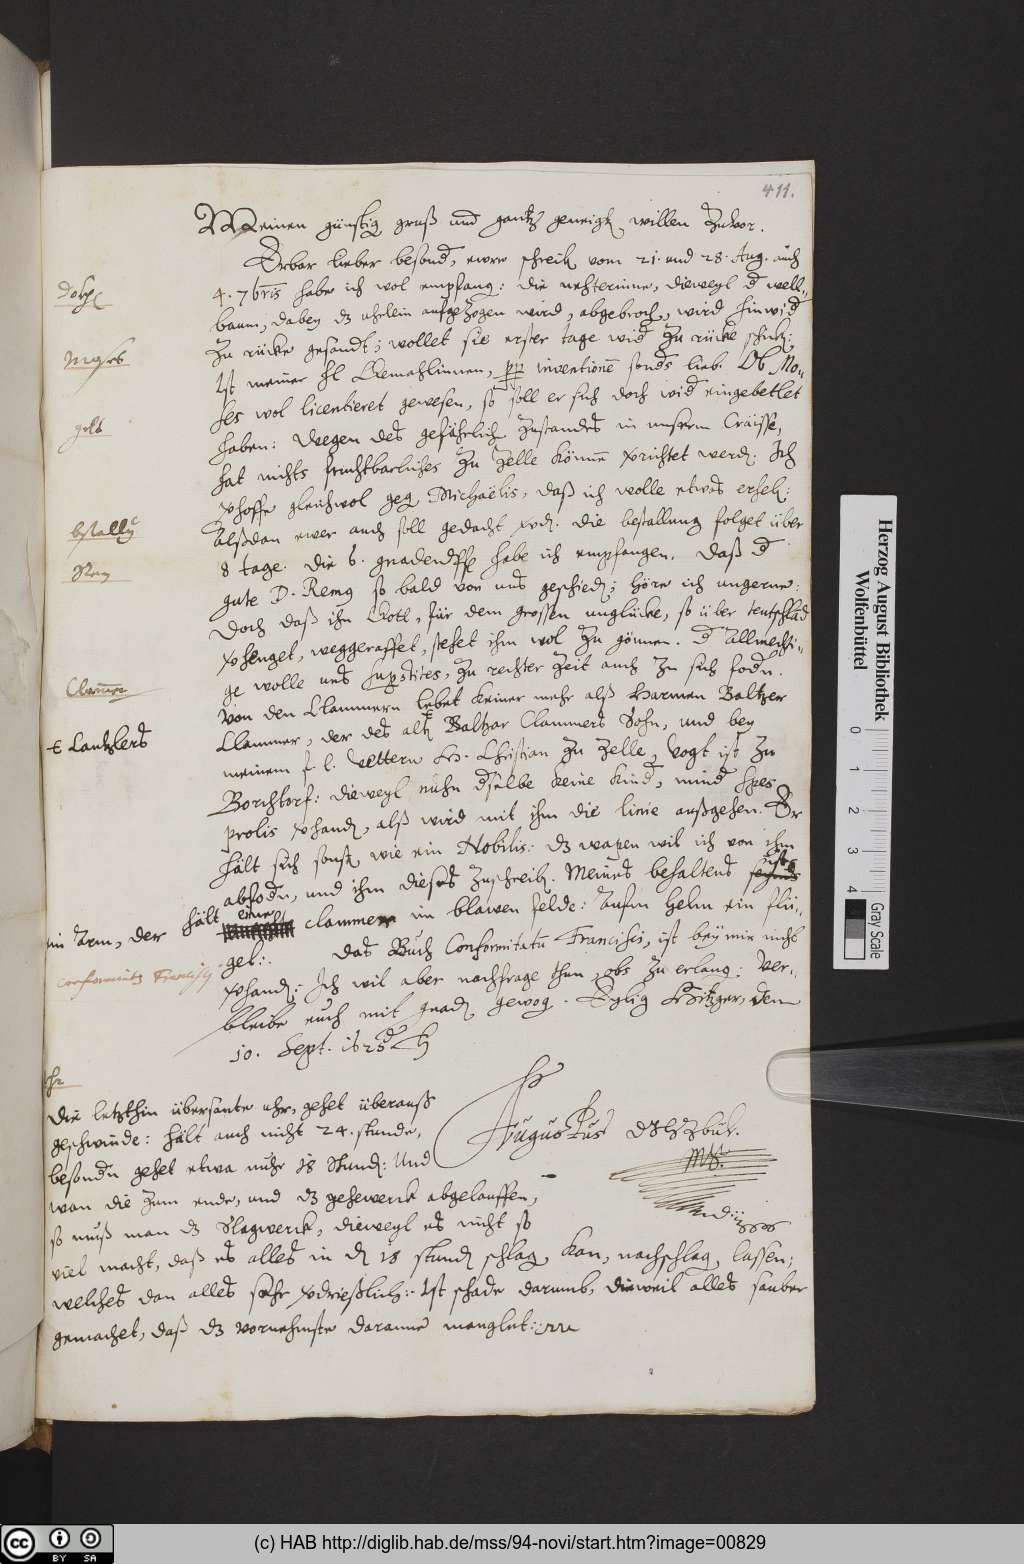 411.
Meinen günstig gruß und gantz geneigt willen zuvor.
Erbar lieber besond, ewre schreib vom 21. und 28. Aug. auch
4. 7bris habe ich wol empfang: die dieweyl d
baum, dabey dz uhrlein aufgezogen wird, abgebroch, wird hinwid
zu rücke gesandt; wollet sie erster tage wid zu rücke schick:
Ist meiner hl Gemahlinnen, inventionē sonds lieb. Ob Mo-
ses wol licentieret gewesen, so soll er sich doch wid eingebetlet
haben: Wegen des gefährlich zustandes in unserm Cräisse,
hat nichts fruchtbarliches zu Zelle könnē vrichtet werd: Ich
vhoffe gleichwol geg Michaëlis, daß ich wolle etwas erheb:
Alßdan ewer auch soll gedacht wd. die bestallung folget über
8 tage. die 6. habe ich empfangen. Daß d
gute D. Remg so bald von uns geschied; höre ich ungerne:
Doch daß ihn Gott, für dem grossen unglücke, so über teutschlad
vhenget, weggeraffet, stehet ihm wol zu gönnen. d Allmechti-
ge wolle uns supstites, zu rechter Zeit auch zu sich fodn.
Von den Clammern lebet keiner mehr alß Harmen Baltzer
Clammer, der des alt Baltzar Clammers Sohn, und bey
meinem f. l. Vettern H. Christian zu Zelle, Vogt ist zu
Borchtorf: dieweyl nuhn dselbe keine kind, mind spes
prolis vhand, alß wird mit ihm die linie außgehen. Er
hält sich sonst wie ein Nobilis: dz wapen wil ich von ihm
abfodn, und ihm dieses zuschreib. Meines behaltens ists
ein Arm, der hält eine clammer im blawen felde: Aufm Helm ein flü-
gel:. Das Buch Conformitatū Francisci, ist bey mir nicht
vhand: Ich wil aber nachfrage thun, obs zu erlang: Ver-
bleibe euch mit gnad gewog. Eylig Hitzger, den
10. Sept. 1625
Clammer
Cantzlers
bestallg
Remg
Moses
geld
conformitas Francisci
uhr
Die letzthin übersante uhr, gehet überauß
geschwinde: hält auch nicht 24. stunde,
besondn gehet etwa nuhr 18 Stund: Und
wan die zum ende, und dz gehewerck abgelauffen,
so muß man dz Slagwerck, dieweyl es nicht so
viel macht, daß es alles in d 18 stund schlag kan, nachschlag lassen;
welches dan alles sehr vdrießlich:. Ist schade darumb, dieweil alles sauber
gemachet, daß dz vornehmste daranne manglet:.
Augustus
Herzog August Bibliothek
Wolfenbüttel
0 1 2 3 4
Gray Scale
cc BY SA
(c) HAB http://diglib.hab.de/mss/94-novi/start.htm?image=00829